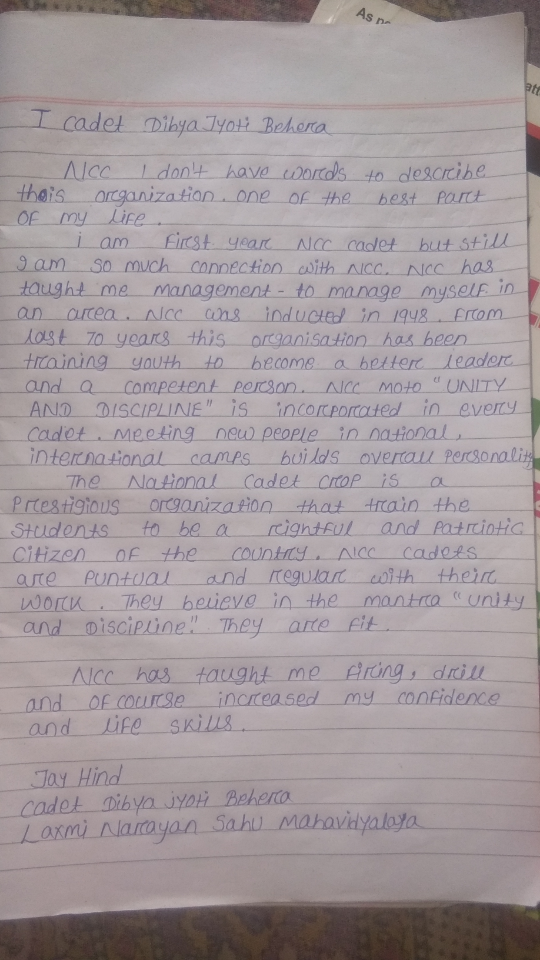 As pe
att
I cadet Dibya Jyoti Behera
NCC I don't have words to describe
this organization. one of the best part
of my life.
i am First year NCC cadet but still
I am so much connection with NCC. NCC has
taught me management - to manage myself in
an area. NCC was inducted in 1948. From
last 70 years this organisation has been
training youth to become a better leader
and a competent person. NCC moto "UNITY
AND DISCIPLINE" is incorporated in every
cadet. Meeting new people in national,
international camps builds overall personality
The National Cadet crop is a
Prestigious organization that train the
students to be a rightful and Patriotic
Citizen of the country. NCC cadets
are puntual and regular with their
work. They believe in the mantra "unity
and Discipline." They are fit.
NCC has taught me firing, drill
and of course increased my confidence
and life skills.
Jay Hind
Cadet Dibya jyoti Behera
Laxmi Narayan Sahu Mahavidyalaya